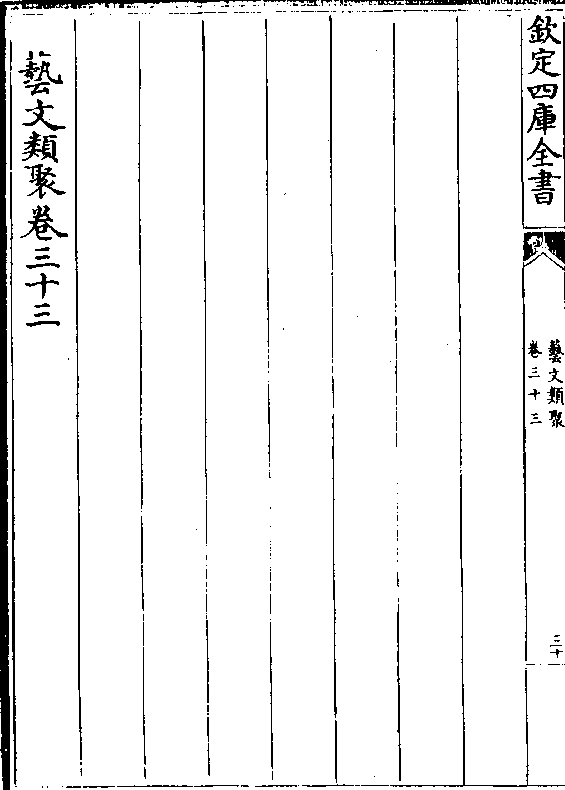 欽定四庫全書
藝文類聚
卷三十三
三十
藝文類聚卷三十三